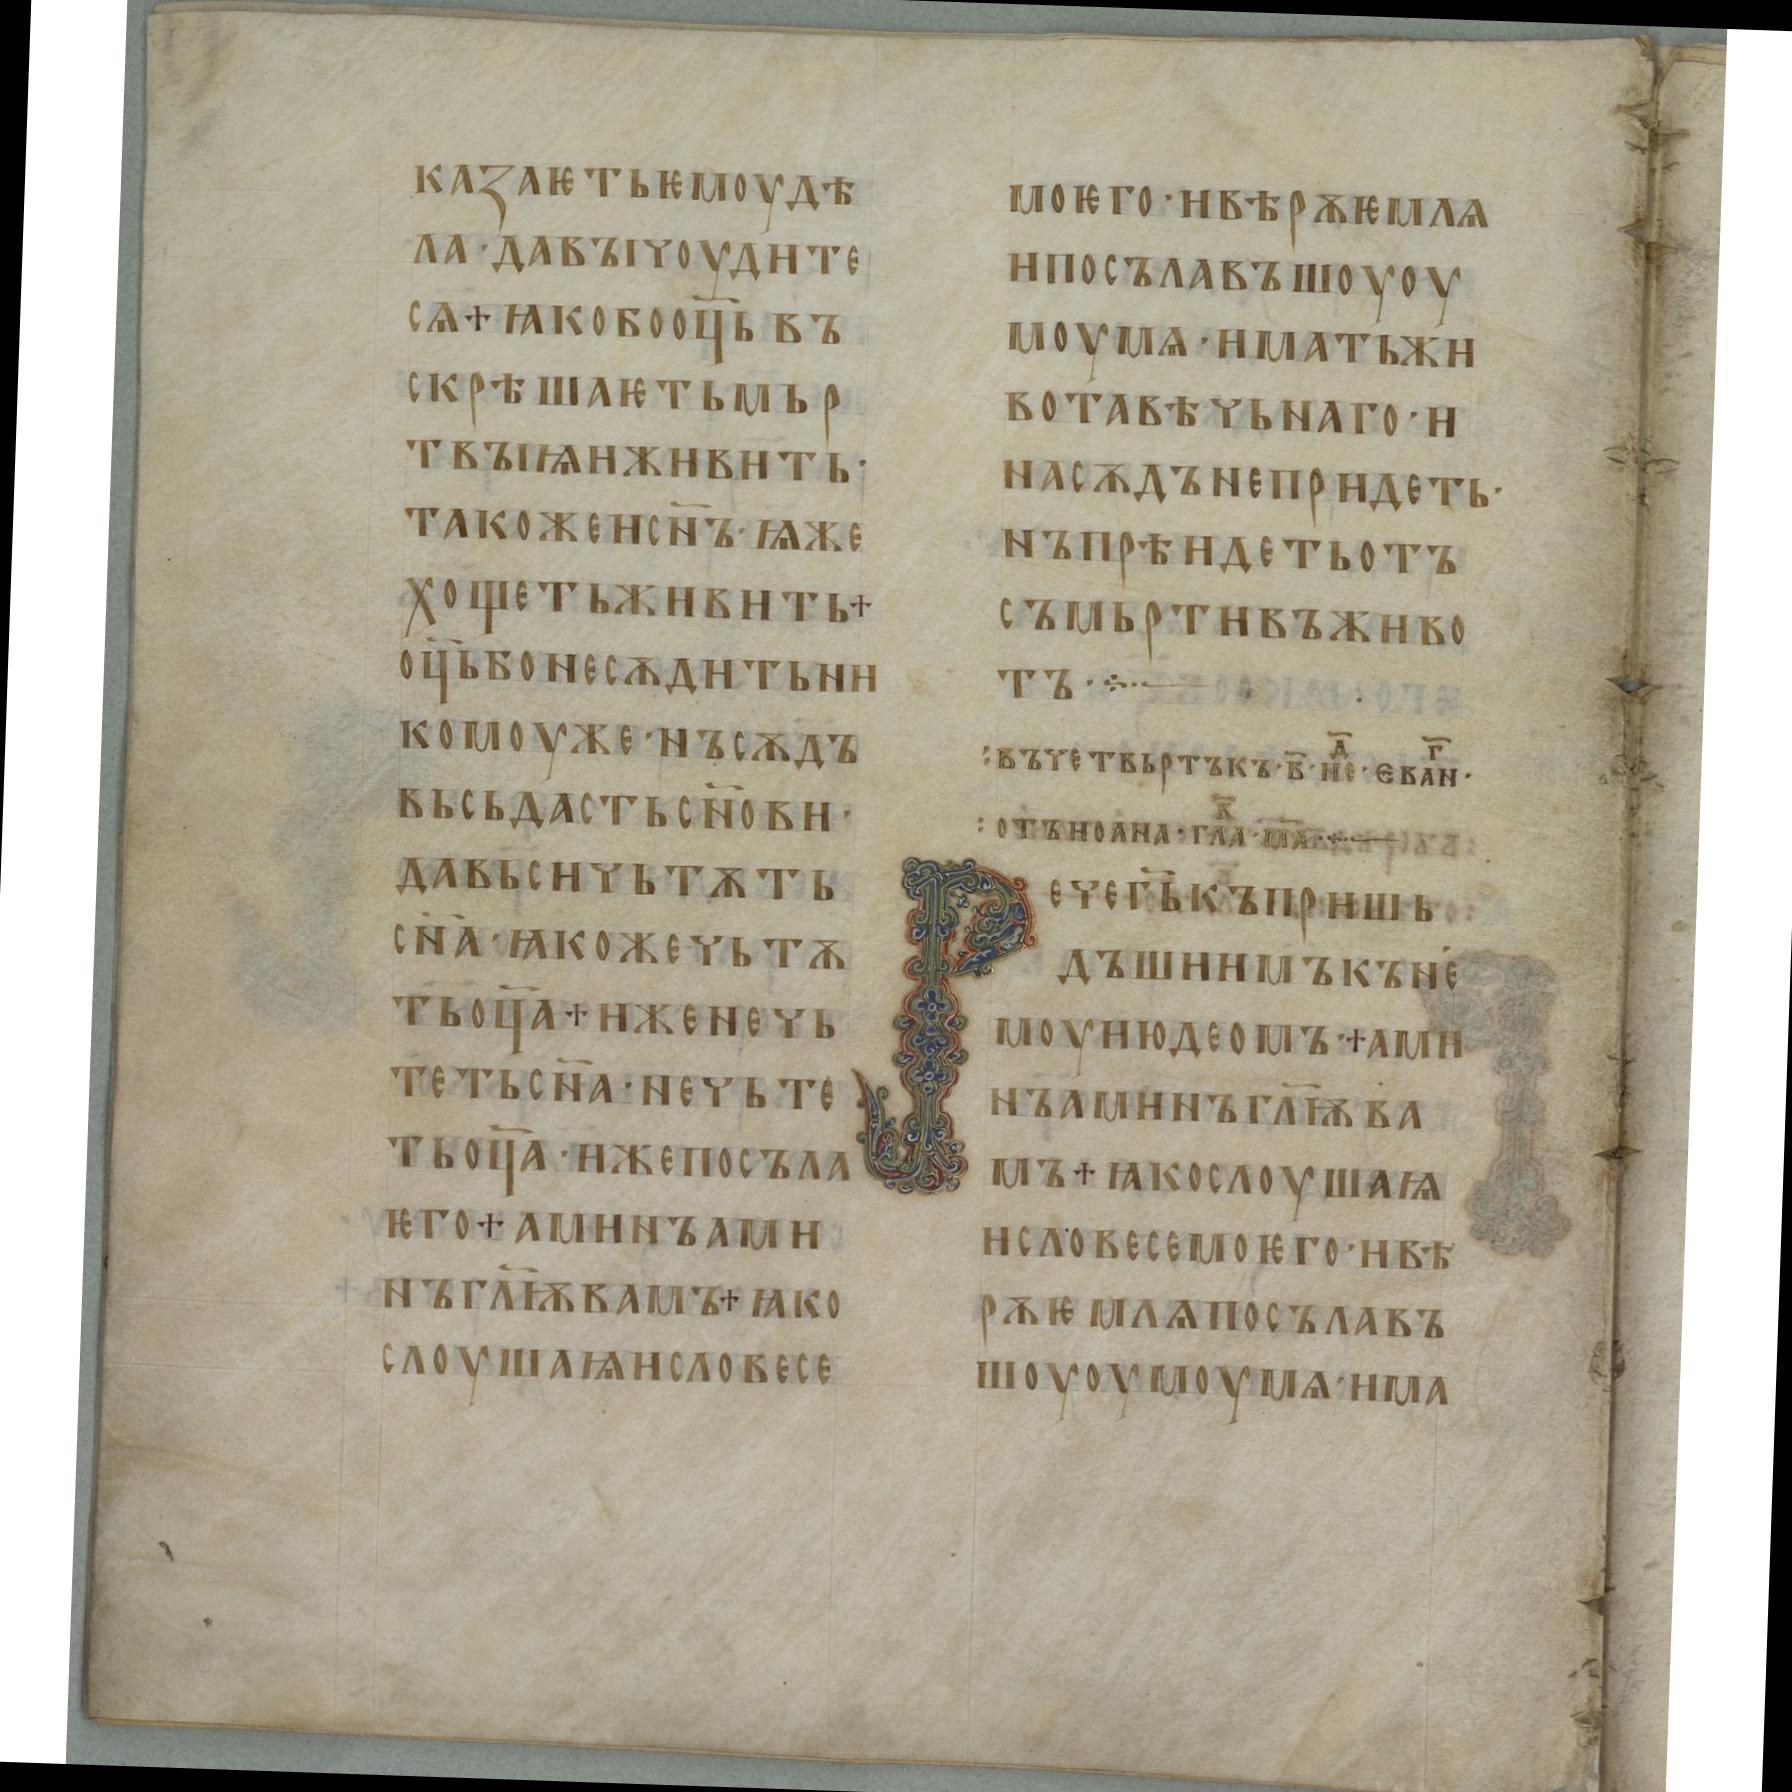 каꙁаѥтьѥмоудѣ
ла·давꙑчоудите
сѧ+ꙗкобооц҃ьвъ
скрѣшаѥтьмьр
твꙑѩиживить·
такожеисн҃ъ·ѩже
хощетьживить+
оц҃ьбонесѫдитьни
комоуже·нъсѫдъ
вьсьдастьсн҃ови·
давьсичьтѫть
сн҃а·ꙗкожечьтѫ
тьоц҃а+иженечь
тетьсн҃а·нечьте
тьоц҃а·ижепосъла
ѥго+аминъами
нъгл҃ѭвамъ+ꙗко
слоушаѩисловесе
моѥго·ивѣрѫѥмлѧ
ипосълавъшоуоу
моумѧ·иматьжи
вотавѣчьнаго·и
насѫдънепридеть·
нъпрѣидетьотъ
съмьртивъживо
тъ·
:въчетвьртъкъ·в҃·неⷣ·еванⷢ·
:отъиоана·глаⷦ·ма·
Речег҃ькъпришь
дъшиимъкъне
моуиюдеомъ·+ами
нъаминъгл҃ѭва
мъ+ꙗкослоушаѩ
исловесемоѥго·ивѣ
рѫѥмлѧпосълавъ
шоуоумоумѧ·има